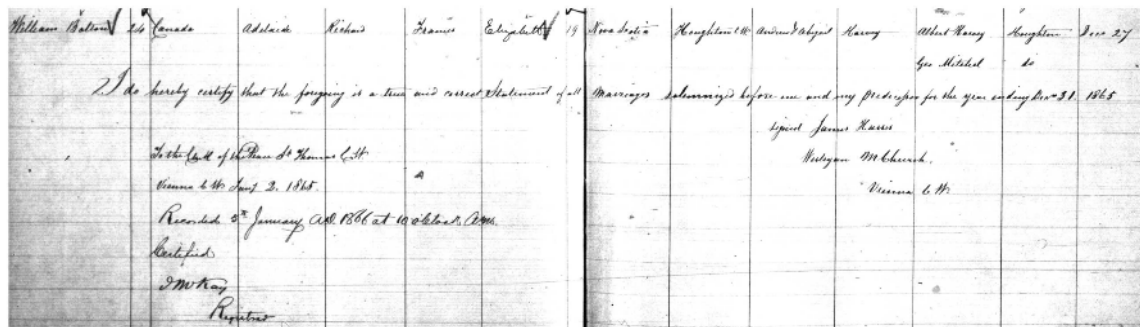 William Balton 24 Canada Adelaide Richard Frances Elizabeth 19 Nova Scotia Houghton C W Andrew & Abigail Harvey Albert Harvey Houghton Decr 27
Geo Mitchel do
I do hereby certify that the foregoing is a true and correct Statement of all Marriages solemnized before me and my Predecessor for the year ending Decr 31 1865
signed James Harris
To the Clerk of the Peace St Thomas C.W.
Wesleyan M Church.
Vienna C W. Jany 2. 1865.
Vienna C W.
Recorded 5th January A.D. 1866 at 10 oClock A.M.
Certified
J McKay
Registrar